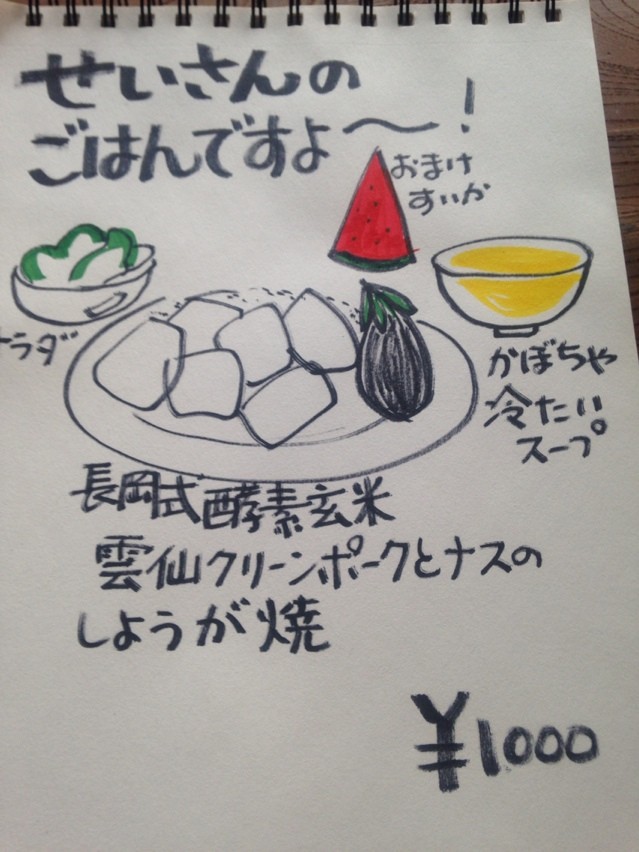 せいさんの
ごはんですよ〜!
おまけ
すいか
ラダ
かぼちゃ
冷たい
スープ
長岡式酵素玄米
雲仙クリーンポークとナスの
しょうが焼
¥1000